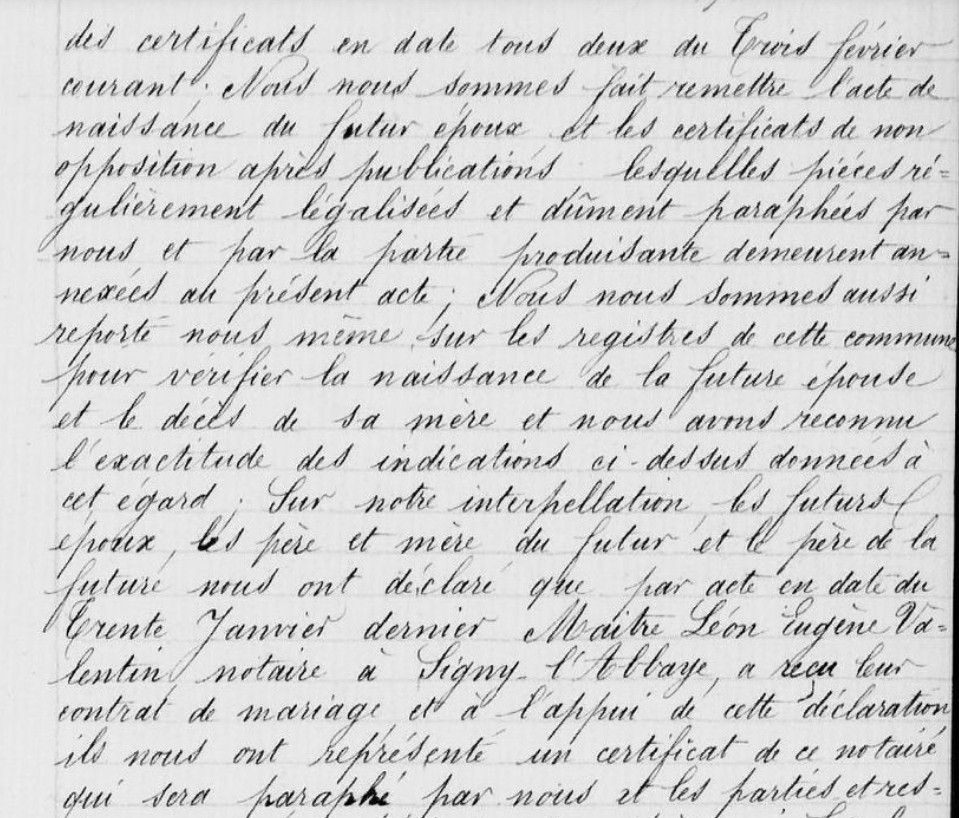 des certificats en date tous deux du Trois février
courant ; Nous nous sommes fait remettre l'acte de
naissance du futur époux et les certificats de non
opposition après publications lesquelles pièces ré=
gulièrement légalisées et dûment paraphées par
nous et par la partie produisante demeurent an=
nexées au présent acte ; Nous nous sommes aussi
reporté nous même sur les registres de cette commune
pour vérifier la naissance de la future épouse
et le décès de sa mère et nous avons reconnu
l'exactitude des indications ci-dessus données à
cet égard ; Sur notre interpellation, les futurs
époux, les père et mère du futur et le père de la
future nous ont déclaré que par acte en date du
Trente Janvier dernier Maître Léon Eugène Va=
lentin, notaire à Signy-l'Abbaye, a reçu leur
contrat de mariage et à l'appui de cette déclaration
ils nous ont représenté un certificat de ce notaire
qui sera paraphé par nous et les parties et res=